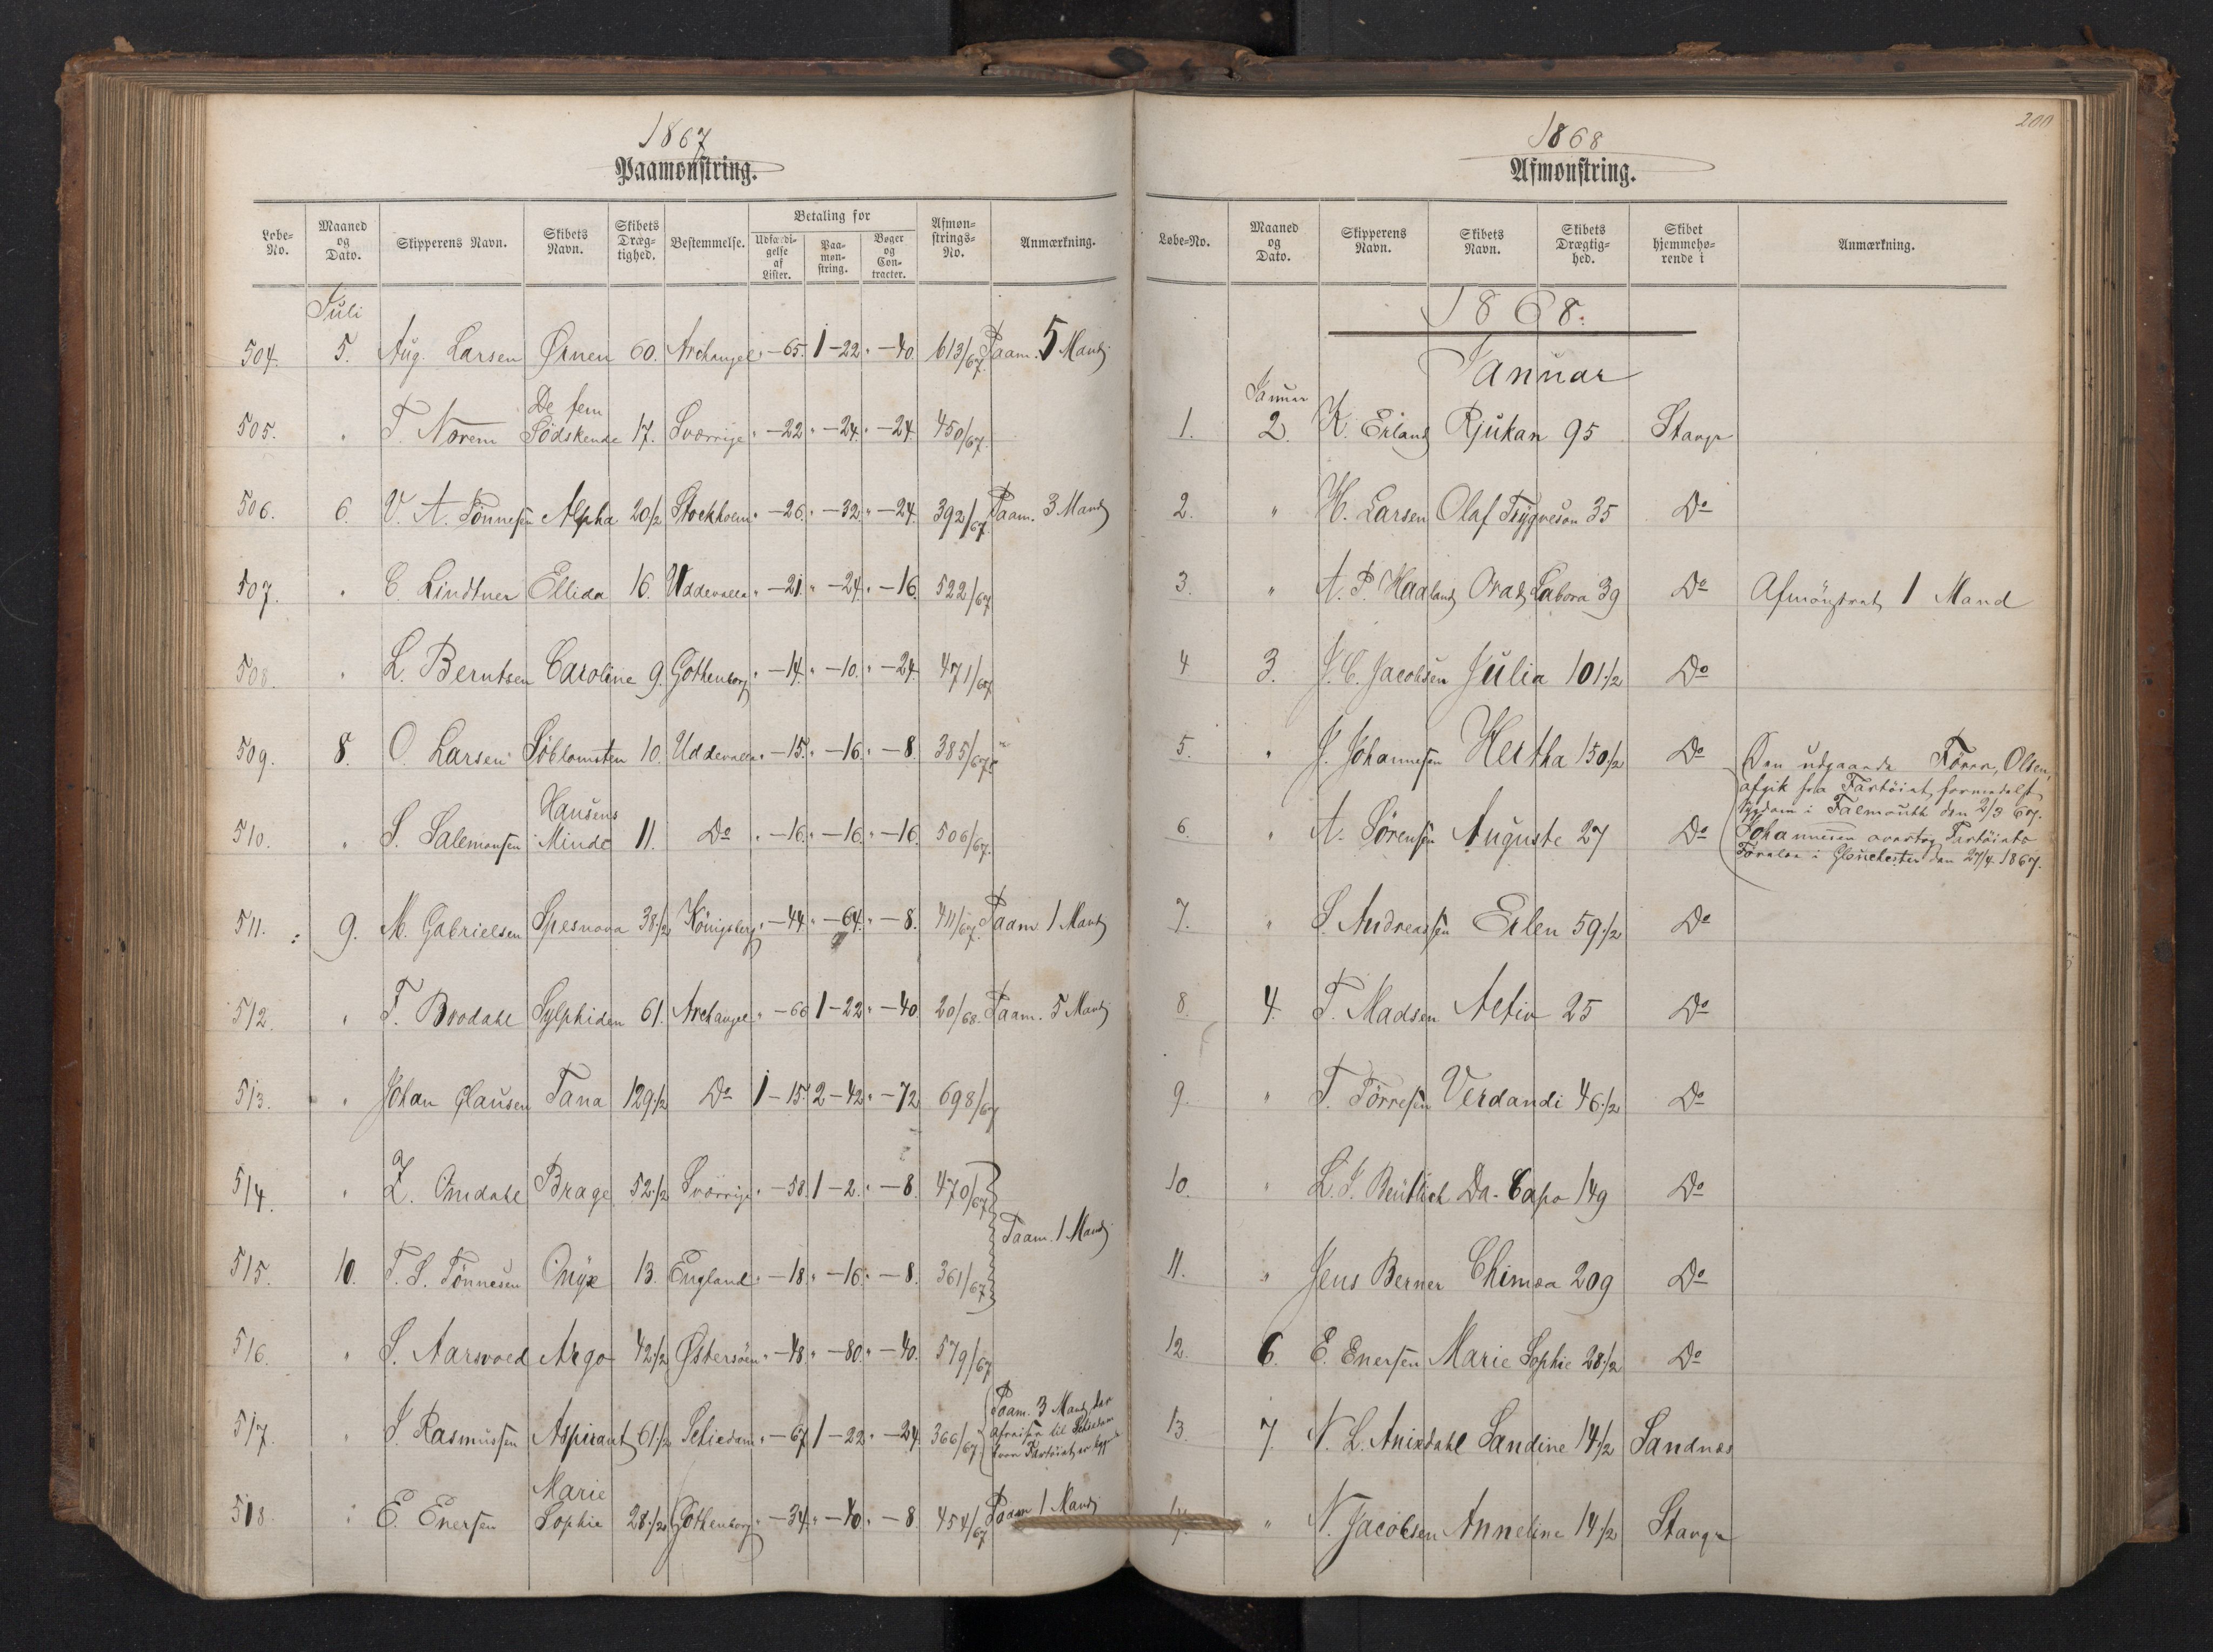 1867
Paamønstring.
Løbe-No. Maaned og Dato. Skipperens Navn. Skibets Navn. Skibets Dræg-tighed. Bestemmelse. Betaling for Udfærdi-gelse af Lister. Paa-møn-string. Bøger og Con-tracter. Afmøn-strings-No. Anmærkning.
Juli
504. 5. Aug. Larsen Ørnen 60. Archangel " -65. 1-22 " -40. 613/67. Paam. 5 Mand
De fem
505. " T. Norem Södskende 17. Sverrige " -22 " -24. " -24 450/67.
506. 6. V. A. Tönnesen Alpha 20 1/2 Stockholm " -26. " -32. " -24. 392/67. Paam. 3 Mand
507. " C. Lindtner Ellida 16. Uddevalla " -21. " -24. " -16. 522/67
508. " L. Berntsen Caroline 9. Gothenborg " -14. " -10. " -24. 471/67
509. 8. O. Larsen Søblomsten 10. Uddevalla " -15. " -16. " -8. 385/67
Hansens
510. " S. Salemonsen Minde 11. Do " -16. " -16. " -16. 506/67.
511. 9. M. Gabrielsen Spesnova 38 1/2 Königsberg " -44. " -64. " -8. 411/67. Paam 1 Mand
512. " T. Brodahl Sylphiden 61. Archangel " -66 1-22 " -40 20/68. Paam. 5 Mand
513. " Johan Clausen Tana 129 1/2 Do 1-15. 2-42 " -72 698/67
514. " Z. Omdahl Brage 52 1/2 Sverrige " -58. 1-2. " -8. 470/67
Paam. 1 Mand
515. 10. T. S. Tönnesen Onyx 13. England " -18. " -16. " -8. 361/67
516. " S. Aarsvold Argo 42 1/2 Østersöen " -48. " -80. " -40. 579/67
517. " J. Rasmussen Aspirant 61 1/2 Schiedam " -67 1-22 " -24. 366/67. Paam. 3 Mand, der
afreiser til Schiedam
hvor Fartöiet er
Marie
518. " E. Enersen Sophie 28 1/2 Göthenborg " -34. " -40. " -8 454/67 Paam 1 Mand
200
1868
Afmønstring.
Løbe-No. Maaned og Dato. Skipperens Navn. Skibets Navn. Skibets Drægtig-hed. Skibet hjemmehø-rende i Anmærkning.
1868.
Januar
Januar
1. 2. K. Eiland Rjukan 95 Stavgr
2. " H. Larsen Olaf Trygveson 35 Do
3. " A. P. Haaland Ora & Labora 39 Do Afmönstret 1 Mand
4 3. J. C. Jacobsen Julia 101 1/2 Do
5. " J. Johannesen Hertha 150 1/2 Do Den udgaaende Förer, Olsen,
afgik fra Fartöiet formedelst
Sygdom i Falmouth den 2/3 67.
6. " A. Sörensen Auguste 27 Do Johannesen overtog Fartöiets
Förelse i Glouchester den 27/4. 1867.
7. " S. Andreassen Erlen 59 1/2 Do
8. 4. T. Madsen Activ 25 Do
9. " T. Törresen Verdandi 46 1/2 Do
10. " L. J. Beutlich Da-Capo 149 Do
11. " Jens Berner Chimæa 209 Do
12. 6. E. Enersen Marie Sophie 28 1/2 Do
13. 7. N. L. Anixdahl Sandine 14 1/2 Sandnes
14. " N. Jacobsen Anneline 14 1/2 Stavgr